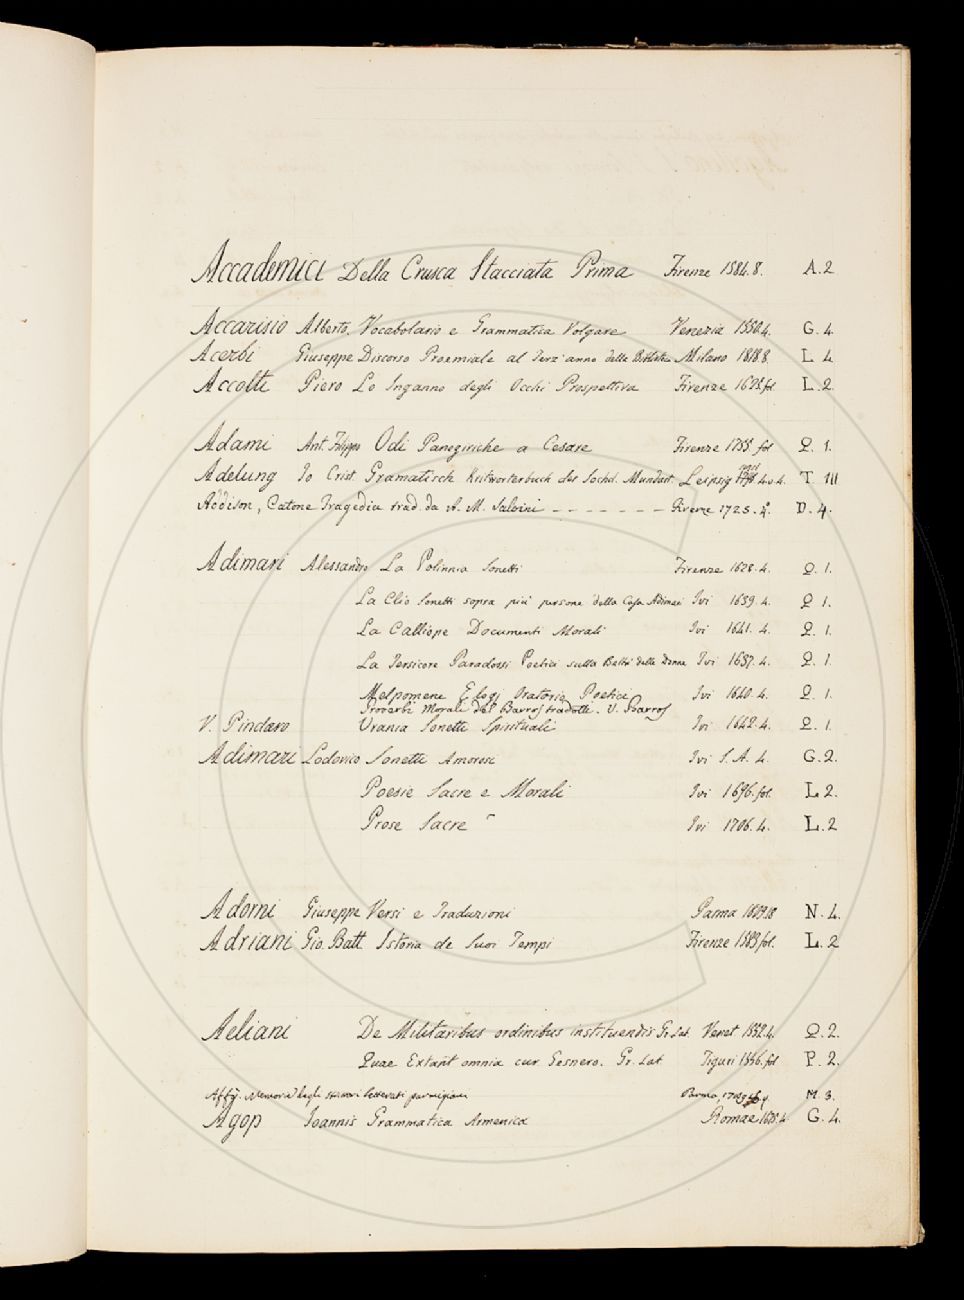 Accademici Della Crusca Stacciata Prima Firenze 1584. 8. A. 2
Accarisio Alberto. Vocabolario e Grammatica Volgare Venezia 1550. 4. G. 4
Acerbi Giuseppe Discorso Proemiale al Terz'anno della Bibliot.ca Milano 1818. 8. L 4
Accolti Piero Lo Inganno degli Occhi Prospettiva Firenze 1625. fol L. 2
Adami Ant. Filippo Odi Panegiriche a Cesare Firenze 1755. fol Q. 1.
Adelung Io Crist Gramatisch Kritworterbuch des Hochd. Mundart Leipsig 4. T. III
Addison, Catone Tragedia trad. da A. M. Salvini - - - - - - - Firenze 1725. 4º. D. 4.
Adimari Alessandro La Polinnia Sonetti Firenze 1628. 4. Q. 1.
La Clio Sonetti sopra più persone della Casa Adimari Ivi 1639. 4. Q 1.
La Calliope Documenti Morali Ivi 1641. 4. Q. 1.
La Tersicore Paradossi Poetici sulla Beltà delle Donne Ivi 1637. 4. Q. 1.
Melpomene Elogj Oratorio Poetici Ivi 1640. 4. Q. 1.
Proverbi Morali del Barros tradotti. V. Barros
V. Pindaro Urania Sonetti Spirituali Ivi 1642. 4. Q. 1.
Adimari Lodovico Sonetti Amorosi Ivi S. A. 4. G. 2.
Poesie Sacre e Morali Ivi 1696. fol. L 2.
Prose Sacre Ivi 1706. 4. L. 2
Adorni Giuseppe Versi e Traduzioni Parma N. 4.
Adriani Gio. Batt. Istoria de Suoi Tempi Firenze 1583 fol. L. 2
Aeliani De Militaribus ordinibus instituendis Gr. Lat. Venet 1552. 4. Q. 2.
Quae Extant omnia cur. Gesnero. Gr. Lat Tiguri 1556. fol P. 2.
Affò. Memorie degli scrittori letterati parmigiani Parma, M. 3.
Agop Joannis Grammatica Armenica Romae 1675. 4 G. 4.